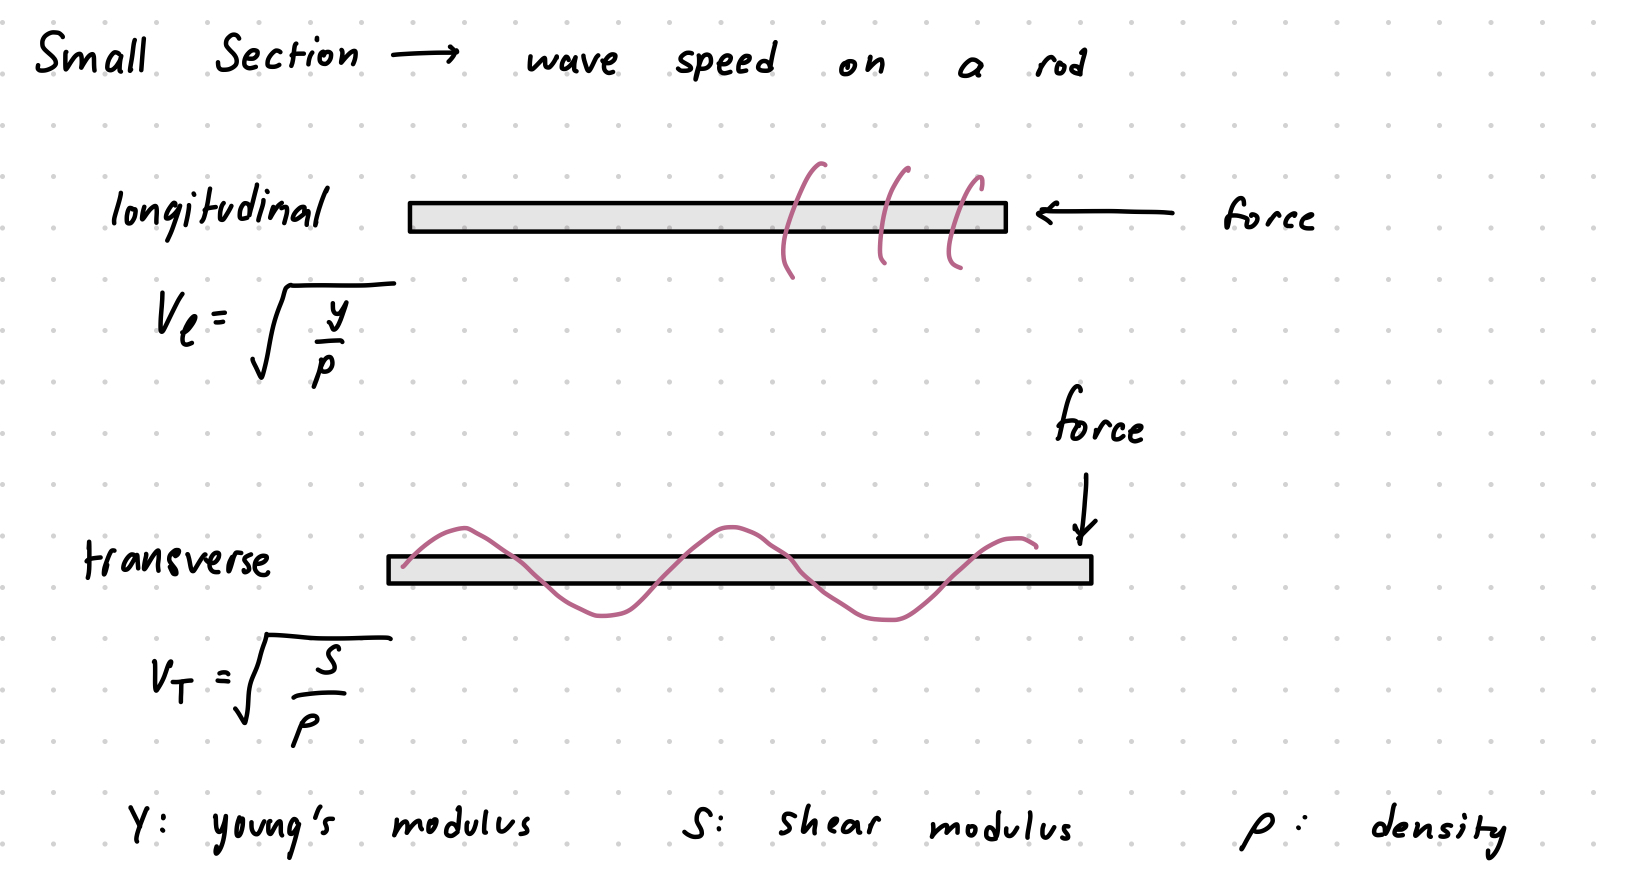 Small Section → wave speed on a rod
longitudinal
force
Vℓ = √(y/ρ)
force
transverse
V_T = √(S/ρ)
Y: young's modulus S: shear modulus ρ: density